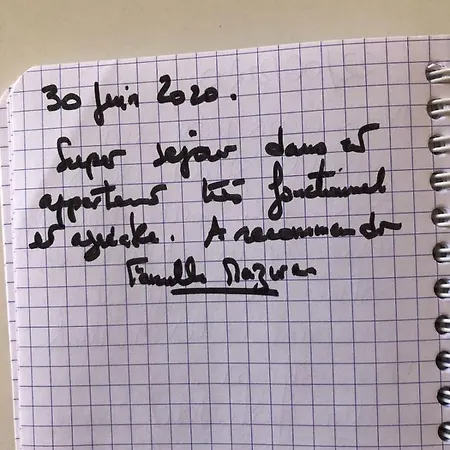 30 Juin 2020.
Super séjour dans cet
appartement très fonctionnel
et agréable. A recommander
Famille